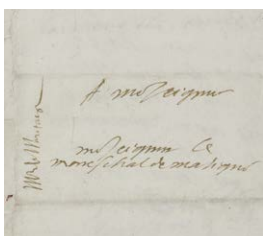 A monseigneur
monseigneur le
mareschal de matignon